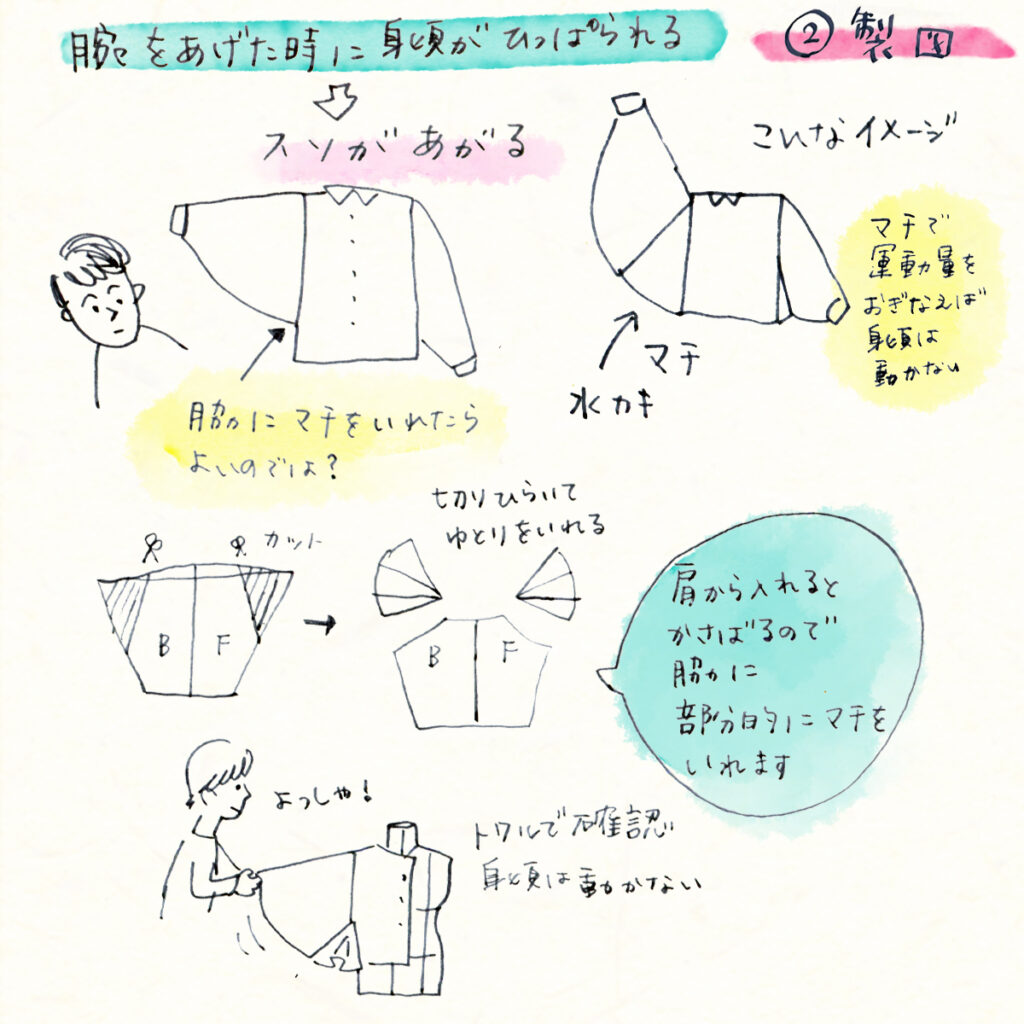 腕をあげた時に身頃がひっぱられる
② 製図
スソがあがる
こんなイメージ
マチで
運動量を
おぎなえば
身頃は
動かない
マチ
水カキ
脇にマチをいれたら
よいのでは?
切りひらいて
ゆとりをいれる
カット
B F
B F
肩から入れると
かさばるので
脇に
部分的にマチを
いれます
よっしゃ!
トワルで確認
身頃は動かない